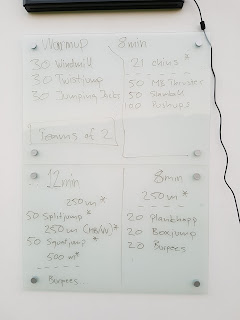 Warmup
30 Windmill
30 Twistjump
30 Jumping Jacks
Teams of 2
8min
21 chins *
50 MB Thruster
50 Slamball
100 Pushups
12min
250 m *
50 Splitjump *
250 m *
50 Squatjump *
500 m *
Burpees
8min
250 m *
20 Plankhopp
20 Boxjump
20 Burpees